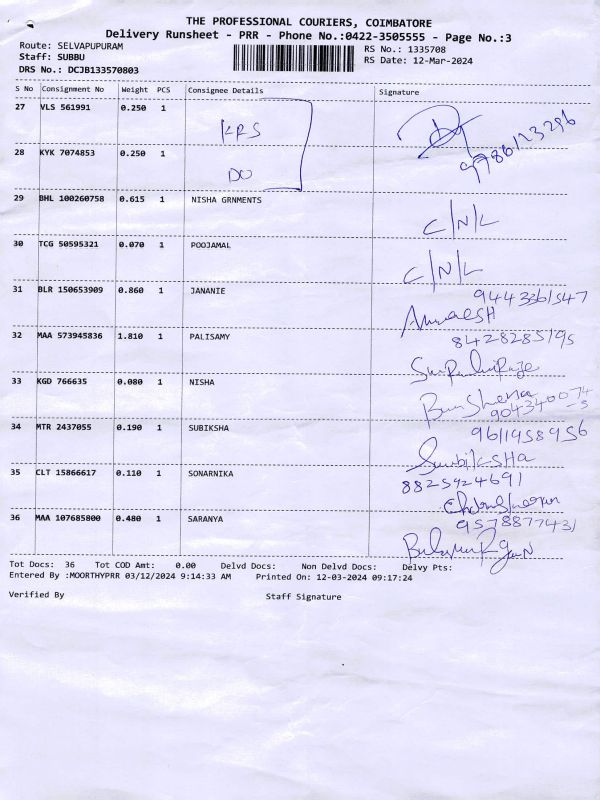 THE PROFESSIONAL COURIERS, COIMBATORE
Delivery Runsheet - PRR - Phone No.:0422-3505555 - Page No.:3
Route: SELVAPUPURAM RS No.: 1335708
Staff: SUBBU RS Date: 12-Mar-2024
DRS No.: DCJB133570803
S No Consignment No Weight PCS Consignee Details Signature
27 VLS 561991 0.250 1 KRS 9786123296
28 KYK 7074853 0.250 1 DO
29 BHL 100260758 0.615 1 NISHA GRNMENTS C/N/L
30 TCG 50595321 0.070 1 POOJAMAL C/N/L
31 BLR 150653909 0.860 1 JANANIE 9443361547
32 MAA 573945836 1.810 1 PALISAMY 8428285195
33 KGD 766635 0.080 1 NISHA
34 MTR 2437055 0.190 1 SUBIKSHA 9611958956
35 CLT 15866617 0.110 1 SONARNIKA 8825924691
36 MAA 107685800 0.480 1 SARANYA 9578877431
Tot Docs: 36 Tot COD Amt: 0.00 Delvd Docs: Non Delvd Docs: Delvy Pts:
Entered By :MOORTHYPRR 03/12/2024 9:14:33 AM Printed On: 12-03-2024 09:17:24
Verified By Staff Signature